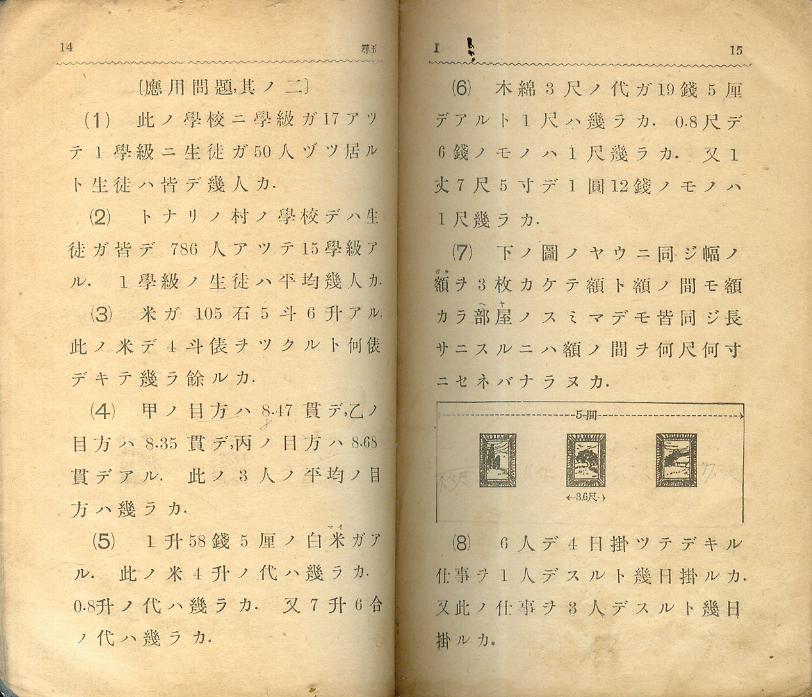 14
尋五
〔應用問題,其ノ二〕
(1) 此ノ學校ニ學級ガ17アツ
テ1學級ニ生徒ガ50人ヅツ居ル
ト生徒ハ皆デ幾人カ.
(2) トナリノ村ノ學校デハ生
徒ガ皆デ 786 人アツテ15學級ア
ル. 1學級ノ生徒ハ平均幾人カ.
(3) 米ガ 105 石5斗6升アル.
此ノ米デ4斗俵ヲツクルト何俵
デキテ幾ラ餘ルカ.
(4) 甲ノ目方ハ 8.47 貫デ,乙ノ
目方ハ 8.35 貫デ,丙ノ目方ハ 8.68
貫デアル. 此ノ3人ノ平均ノ目
方ハ幾ラカ.
(5) 1升58錢5厘ノ白米ガア
ル. 此ノ米4升ノ代ハ幾ラカ.
0.8升ノ代ハ幾ラカ. 又7升6合
ノ代ハ幾ラカ.
I
15
(6) 木綿3尺ノ代ガ19錢5厘
デアルト1尺ハ幾ラカ. 0.8尺デ
6錢ノモノハ1尺幾ラカ. 又1
丈7尺5寸デ1圓12錢ノモノハ
1尺幾ラカ.
(7) 下ノ圖ノヤウニ同ジ幅ノ
額ヲ3枚カケテ額ト額ノ間モ額
カラ部屋ノスミマデモ皆同ジ長
サニスルニハ額ノ間ヲ何尺何寸
ニセネバナラヌカ.
5間
3.6尺
(8) 6人デ4日掛ツテデキル
仕事ヲ1人デスルト幾日掛ルカ.
又此ノ仕事ヲ3人デスルト幾日
掛ルカ.